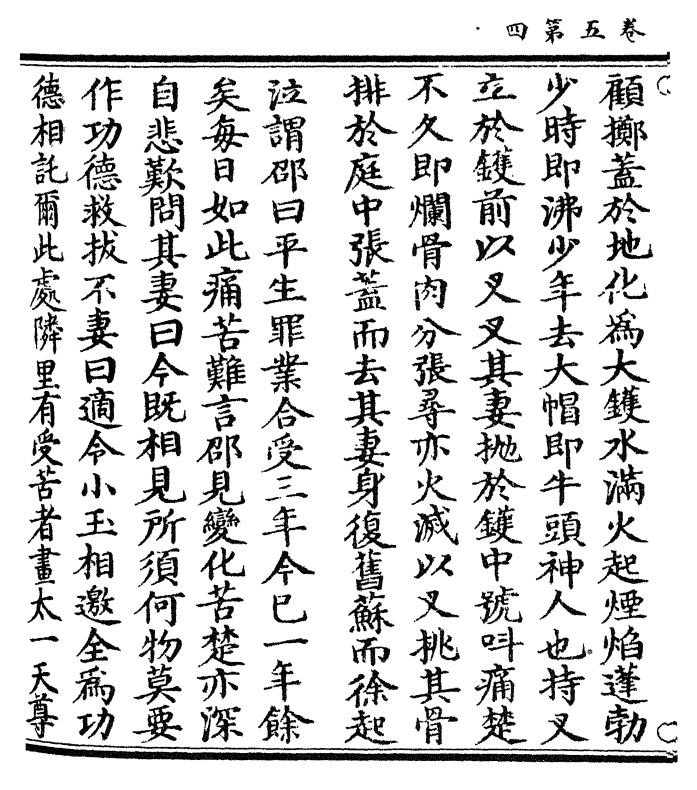 卷五第四
顧擲蓋於地化爲大鑊水滿火起煙焰蓬勃
少時即沸少年去大帽即牛頭神人也持叉
立於鑊前以叉叉其妻抛於鑊中號叫痛楚
不久即爛骨肉分張尋亦火滅以叉挑其骨
排於庭中張蓋而去其妻身復舊蘇而徐起
泣謂邵曰平生罪業合受三年今已一年餘
矣每日如此痛苦難言邵見變化苦楚亦深
自悲歎問其妻曰今既相見所須何物莫要
作功德救拔不妻曰適令小玉相邀全爲功
德相託爾此處隣里有受苦者畫太一天尊